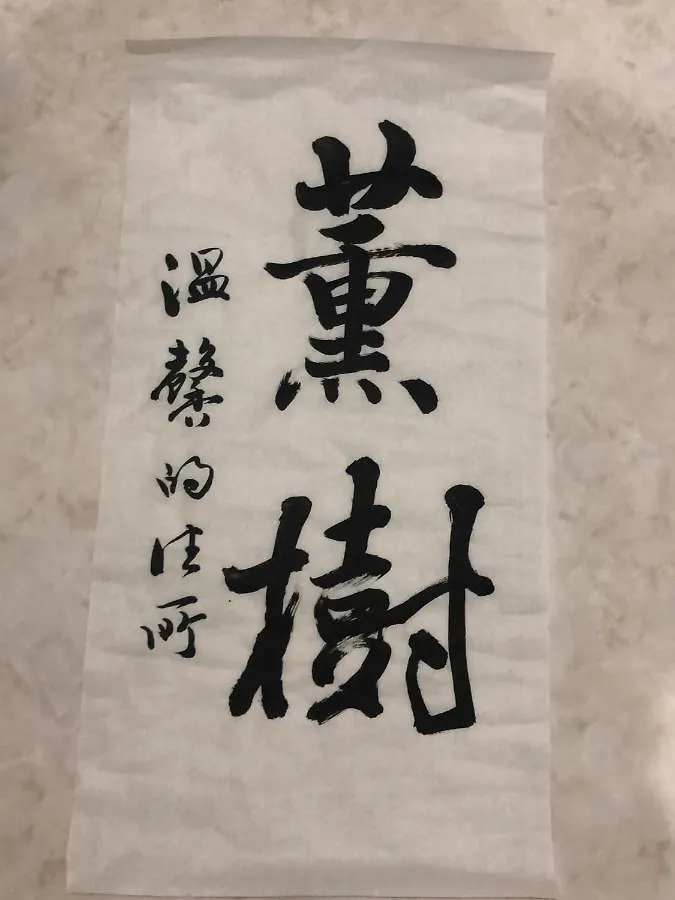 薰樹
溫馨的住所